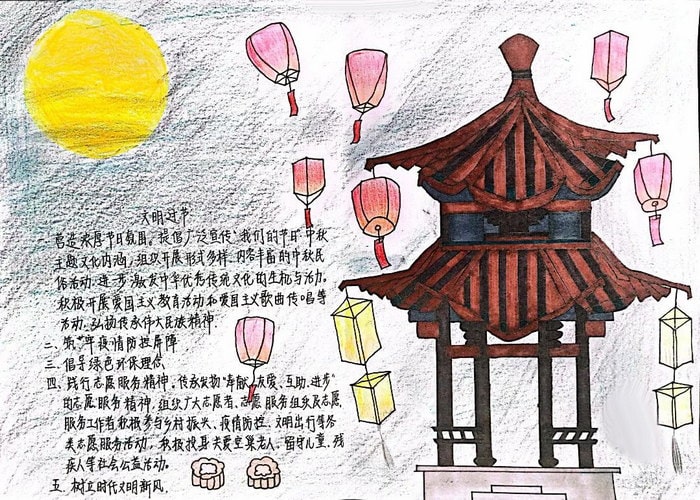 文明过节
一、营造欢度节日氛围。提倡广泛宣传"我们的节日"中秋
主题文化内涵,组织开展形式多样、内容丰富的中秋民
俗活动,进步激发中华优秀传统文化的生机与活力。
积极开展爱国主义教育活动和爱国主义歌曲传唱等
活动,弘扬传承伟大民族精神.
二、筑牢疫情防控屏障
三、倡导绿色环保理念
四、践行志愿服务精神。传承发扬"奉献、友爱、互助、进步"
的志愿服务精神,组织广大志愿者、志愿服务组织及志愿
服务工作者积极参与乡村振兴、疫情防控、文明出行等各
类志愿服务活动,积极投身关爱空巢老人、留守儿童、残
疾人等社会公益活动。
五、树立时代文明新风.